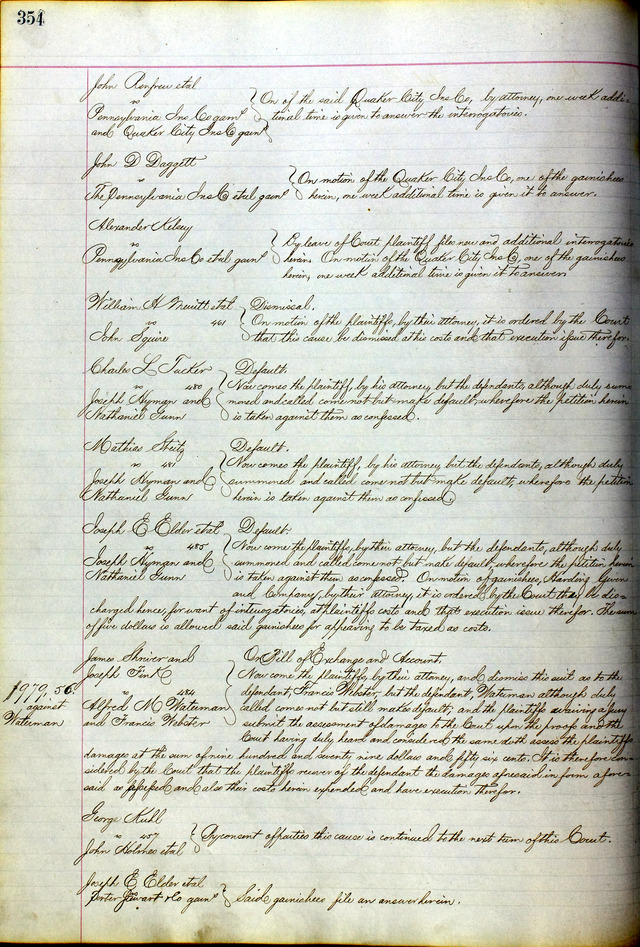 354
John Renfrew etal
vs
Pennsylvania Ins Co garnt
and Quaker City Ins Co garnt
On of the said Quaker City Ins Co, by attorney, one week addi-
tional time is given to answer the interrogatories.
John D Daggett
vs
The Pennsylvania Ins Co etal garnt
On motion of the Quaker City Ins Co, one of the garnishees
herein, one week additional time is given it to answer.
Alexander Kelsey
vs
Pennsylvania Ins Co etal garnt
By leave of Court plaintiff files new and additional interrogatories
herein. On motion of the Quaker City Ins Co, one of the garnishees
herein, one week additional time is given it to answer.
William H Merritt etal
vs 461
John Squire
Dismissal.
On motion of the plaintiffs, by their attorney, it is ordered by the Court
that this cause be dismissed at his costs and that execution issue therefor.
Charles L Tucker
vs 480
Joseph Hyman and
Nathaniel Gunn
Default.
Now comes the plaintiff, by his attorney, but the defendants, although duly sum-
moned and called come not but make default, wherefore the petition herein
is taken against them as confessed.
Mathias Steitz
vs 481
Joseph Hyman and
Nathaniel Gunn
Default.
Now comes the plaintiff, by his attorney but the defendants, although duly
summoned and called come not but make default, wherefore the petition
herein is taken against them as confessed
Joseph E Elder etal
vs 485
Joseph Hyman and
Nathaniel Gunn
Default.
Now come the plaintiffs, by their attorney, but the defendants, although duly
summoned and called come not, but make default, wherefore the petition herein
is taken against them as confessed. On motion of garnishees, Harding Gunn
and Company, by their attorney, it is ordered by the Court they be dis-
charged hence, for want of interrogatories, at plaintiffs costs and that execution issue therefor. The sum
of five dollars is allowed said garnishees for appearing to be taxed as costs.
James Shriver and
Joseph Fink
vs 484
Alfred M Waterman
and Francis Webster
1979,56
against
Waterman
On Bill of Exchange and Account.
Now come the plaintiffs, by their attorney, and dismiss this suit as to the
defendant, Francis Webster, but the defendant, Waterman although duly
called comes not but still makes default, and the plaintiffs waiving a jury
submit the assessment of damages to the Court upon the proofs and the
Court having duly heard and considered the same doth assess the plaintiffs
damages at the sum of nine hundred and seventy nine dollars and fifty six cents. It is therefore con-
sidered by the Court that the plaintiffs recover of the defendant the damages aforesaid in form afore-
said as assessed and also their costs herein expended and have execution therefor.
George Kuhl
vs 457
John Holmes etal
By consent of parties this cause is continued to the next term of this Court.
Joseph E Elder etal
Porter Stewart & Co garnt
Said garnishees file an answer herein.